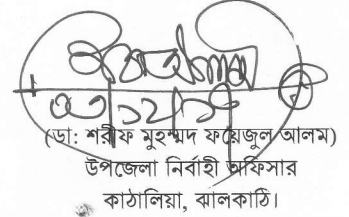 (ডা: শরীফ মুহম্মদ ফয়েজুল আলম)
উপজেলা নির্বাহী অফিসার
কাঠালিয়া, ঝালকাঠি।